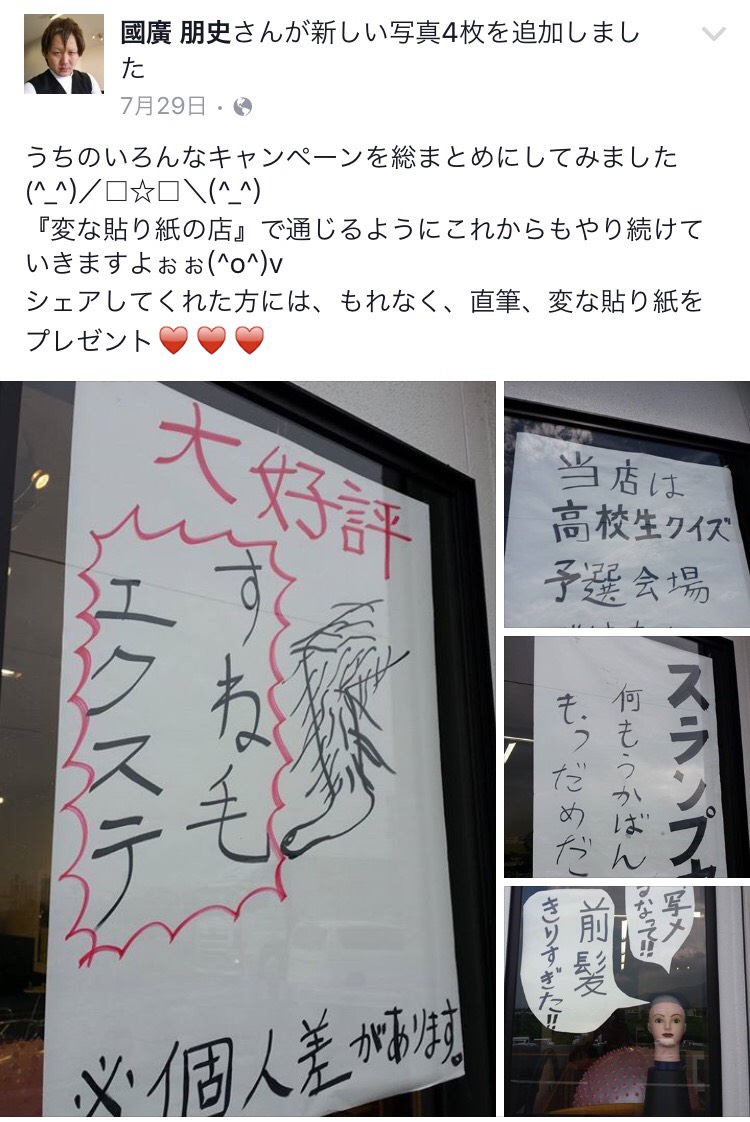 國廣 朋史さんが新しい写真4枚を追加しまし
た
7月29日 ·
うちのいろんなキャンペーンを総まとめにしてみました
(^_^)／□☆□＼(^_^)
『変な貼り紙の店』で通じるようにこれからもやり続けて
いきますよぉぉ(^o^)v
シェアしてくれた方には、もれなく、直筆、変な貼り紙を
プレゼント♥️♥️♥️
大好評
すね毛
エクステ
※個人差があります。
当店は
高校生クイズ
予選会場
スランプ
何もうかばん
もうだめだ
写メ
るなって!!
前髪
きりすぎた!!